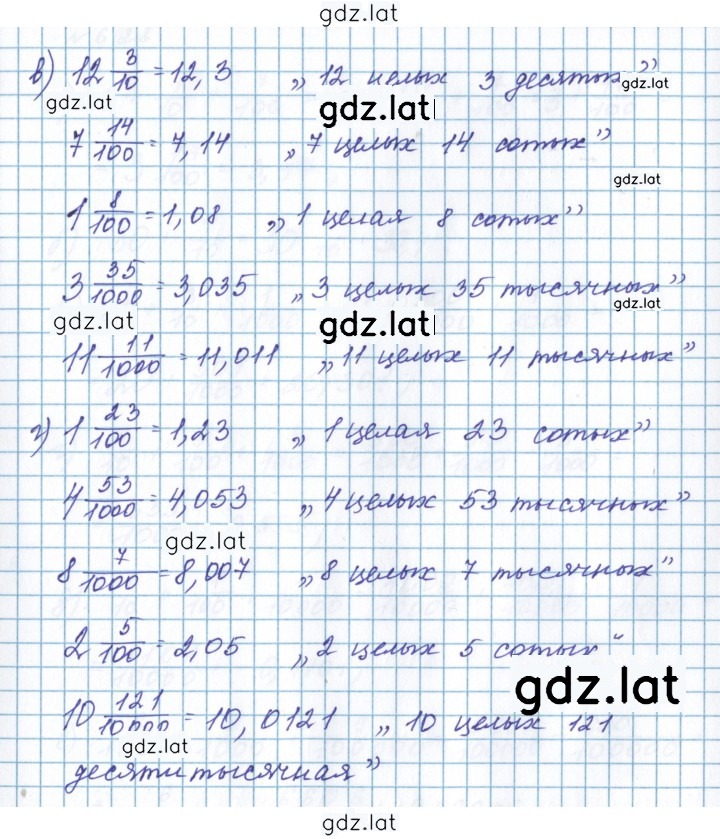 gdz.lat
в) 12 3/10 = 12,3 „12 целых 3 десятых”
gdz.lat gdz.lat gdz.lat
7 14/100 = 7,14 „7 целых 14 сотых”
gdz.lat
1 8/100 = 1,08 „1 целая 8 сотых”
3 35/1000 = 3,035 „3 целых 35 тысячных”
gdz.lat gdz.lat gdz.lat
11 11/1000 = 11,011 „11 целых 11 тысячных”
г) 1 23/100 = 1,23 „1 целая 23 сотых”
4 53/1000 = 4,053 „4 целых 53 тысячных”
gdz.lat
8 7/1000 = 8,007 „8 целых 7 тысячных”
2 5/100 = 2,05 „2 целых 5 сотых”
gdz.lat
10 121/10000 = 10,0121 „10 целых 121
gdz.lat
десятитысячная”
gdz.lat